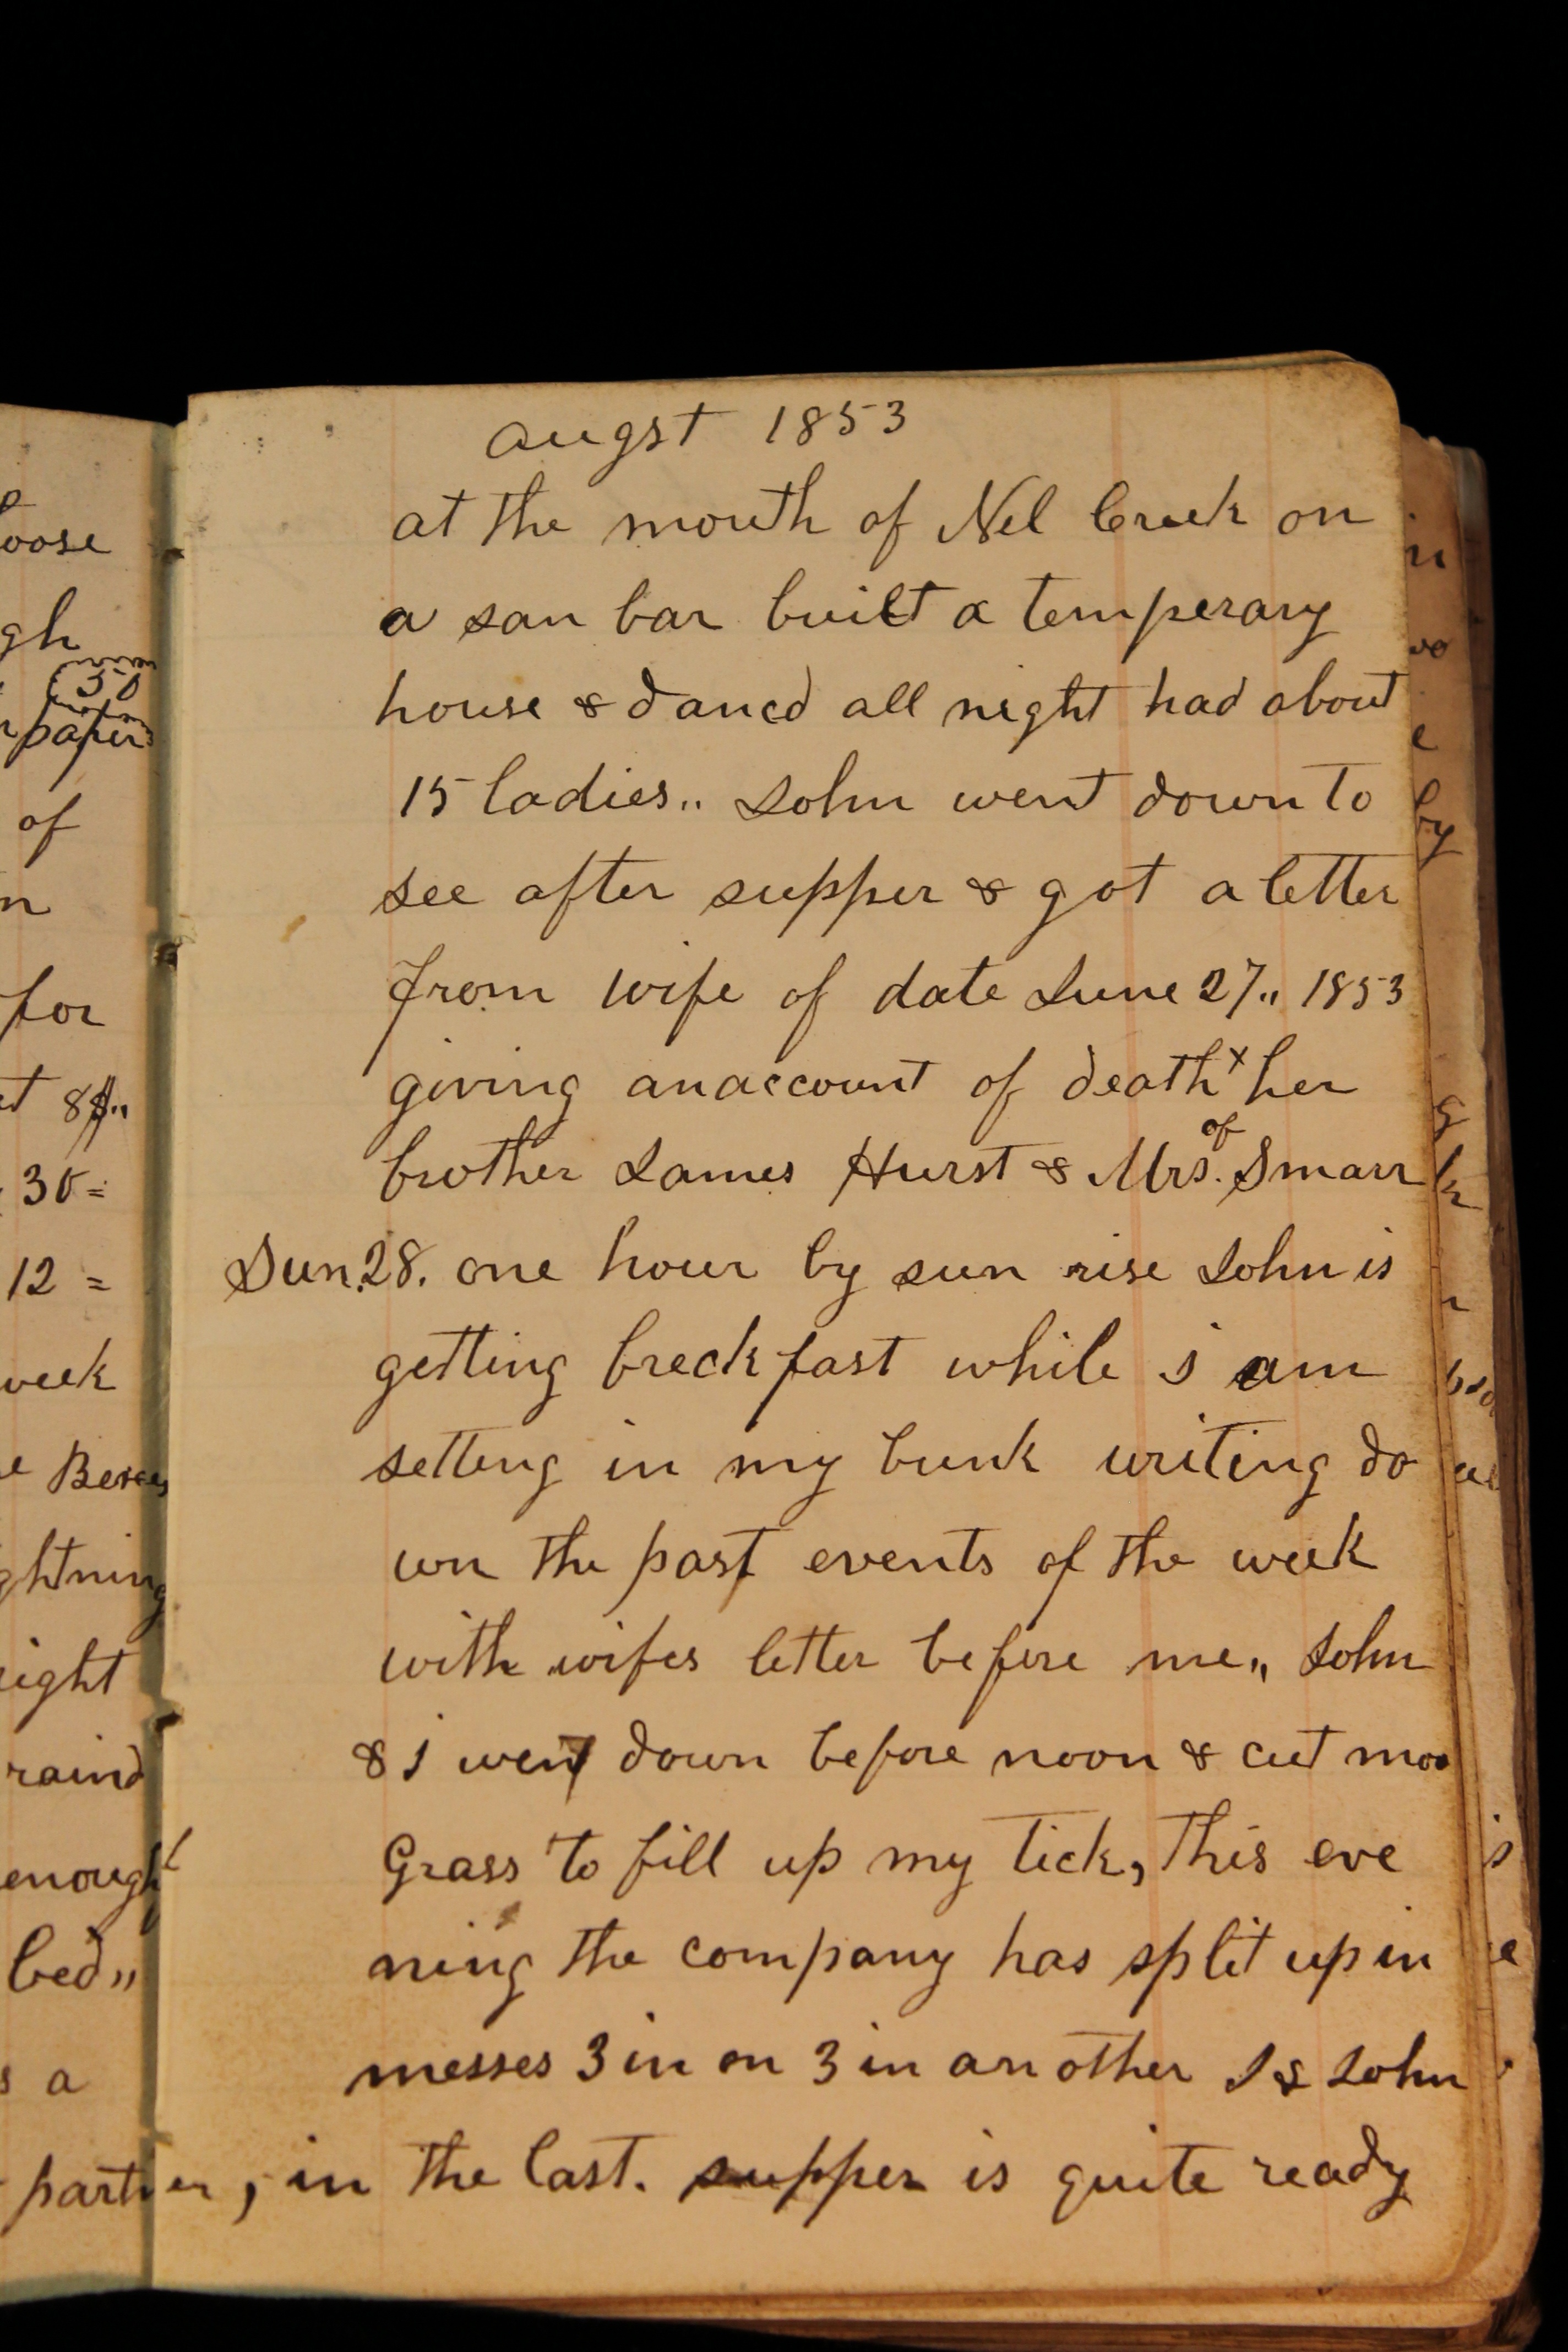 oose
gh
50
paper
of
n
for
t 8$..
30=
12 =
week
ghtning
right
raind
enough
bed"
s a
partner,
augst 1853
at the mouth of Nel Creek on
a san bar built a temperary
house & danced all night had about
15 ladies.. John went down to
see after supper & got a letter
from wife of date June 27.. 1853
giving an account of death x her
of
brother James Hurst & Mrs. Smarr
Sun. 28. one hour by sun rise John is
getting breckfast while i am
setteng in my bunk writing do
wn the past events of the week
with wifes letter before me,, John
& i went down before noon & cut mor
Grass to fill up my tick, this eve
ning the company has split up in
messes 3 in on 3 in an other I & John
in the last. supper is quite ready
by